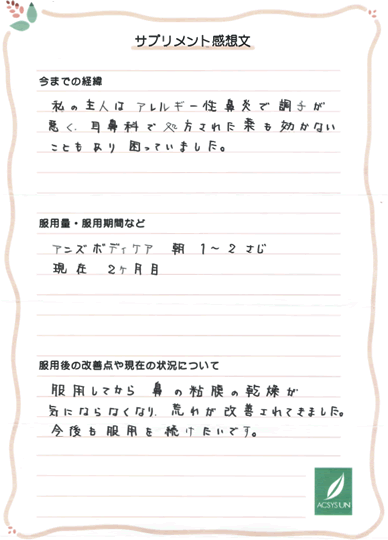 サプリメント感想文
今までの経緯
私の主人は アレルギー性鼻炎で 調子が
悪く、耳鼻科で処方された薬も効かない
こともあり 困っていました。
服用量・服用期間など
アンズボディケア 朝 1〜2さじ
現在 2ヶ月目
服用後の改善点や現在の状況について
服用してから 鼻の粘膜の乾燥が
気にならなくなり、荒れが改善されてきました。
今後も服用を続けたいです。
ACSYSUN